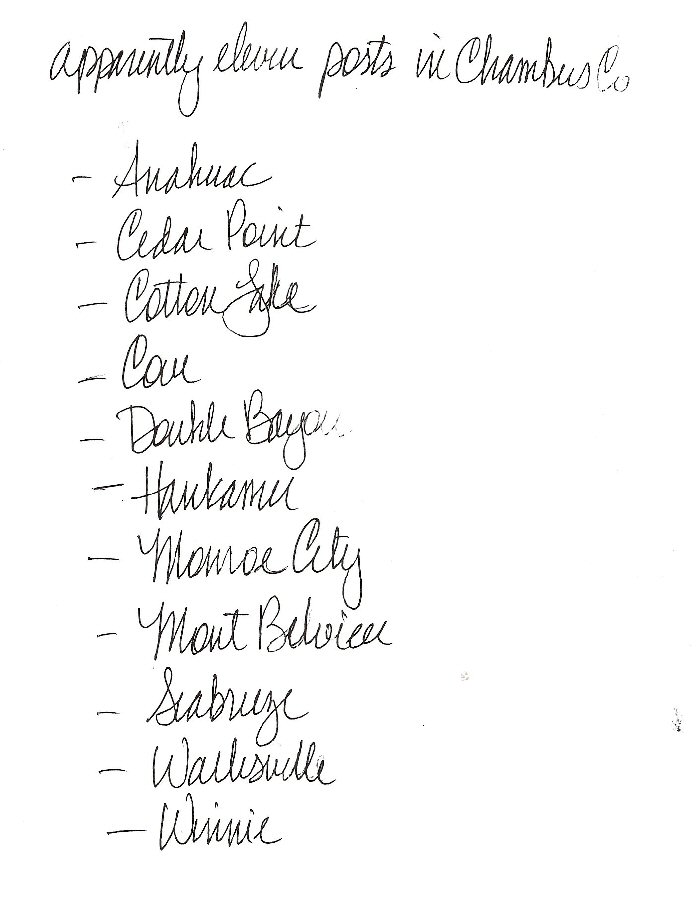 apparently eleven posts in Chambers Co
- Anahuac
- Cedar Point
- Cotton Lake
- Cove
- Double Bayou
- Hankamer
- Monroe City
- Mont Belvieu
- Seabreeze
- Wallisville
- Winnie